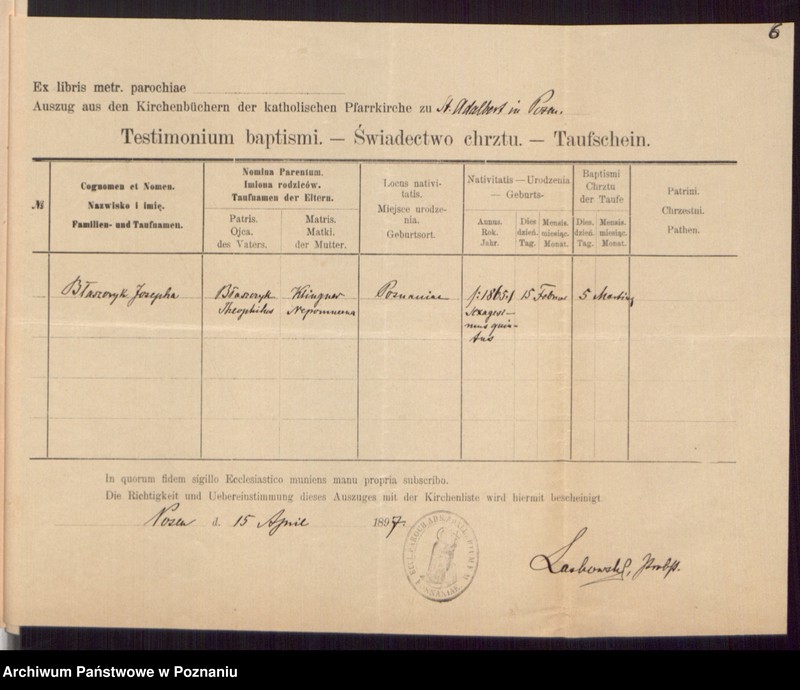 6
Ex libris metr. parochiae
Auszug aus den Kirchenbüchern der katholischen Pfarrkirche zu St. Adalbert in Posen.
Testimonium baptismi. — Świadectwo chrztu. — Taufschein.
№
Cognomen et Nomen.
Nazwisko i imię.
Familien- und Taufnamen.
Nomina Parentum.
Imiona rodziców.
Taufnamen der Eltern.
Patris.
Ojca.
des Vaters.
Matris.
Matki.
der Mutter.
Locus nativi-
tatis.
Miejsce urodze-
nia.
Geburtsort.
Nativitatis — Urodzenia
— Geburts-
Annus.
Rok.
Jahr.
Dies
dzień.
Tag.
Mensis.
miesiąc.
Monat.
Baptismi
Chrztu
der Taufe
Dies.
dzień
Tag.
Mensis.
miesiąc.
Monat.
Patrini.
Chrzestni.
Pathen.
Błaszczyk Josepha
Błaszczyk
Theophilus
Klingner
Nepomucena
Posnaniae
/:1865:/
sexagesi-
mus quin-
tus
15 Februar
5 Martius
In quorum fidem sigillo Ecclesiastico muniens manu propria subscribo.
Die Richtigkeit und Uebereinstimmung dieses Auszuges mit der Kirchenliste wird hiermit bescheinigt.
Posen d. 15 April 1897.
Laskowski, Probst.
Archiwum Państwowe w Poznaniu